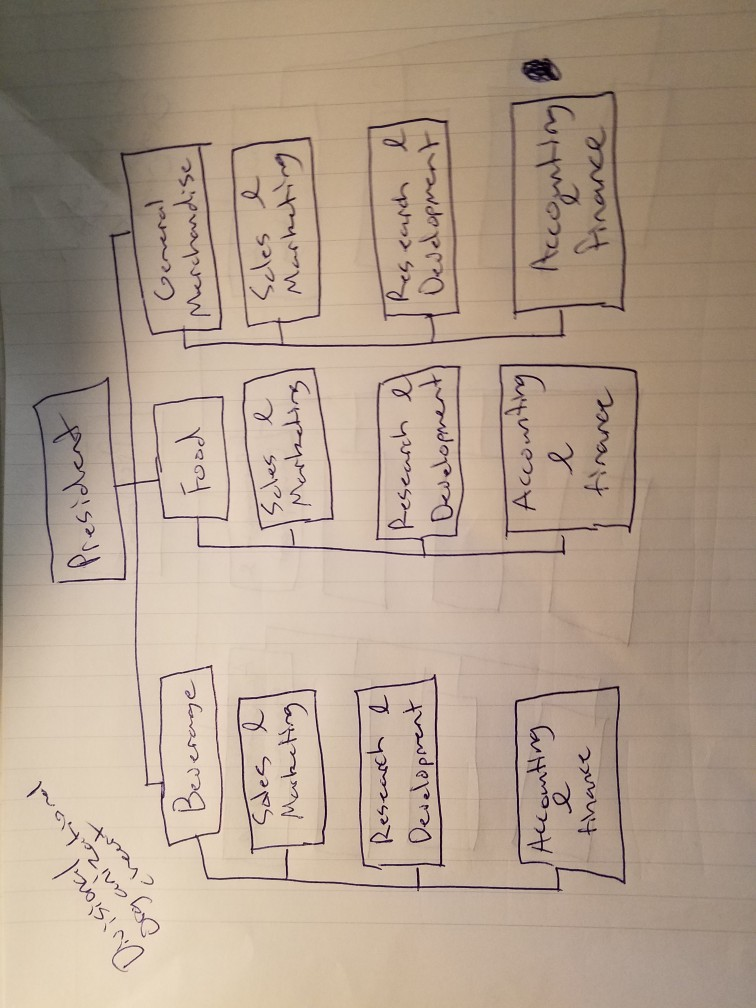 Divisional
organizational
chart
President
Beverage
Sales &
Marketing
Research &
Development
Accounting
&
finance
Food
Sales &
Marketing
Research &
Development
Accounting
&
finance
General
Merchandise
Sales &
Marketing
Research &
Development
Accounting
&
finance